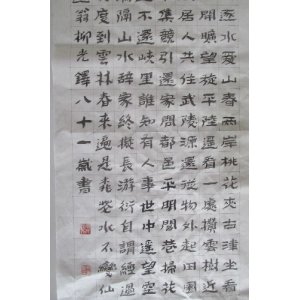 逐水愛山春兩岸桃花夾古津坐看
開曠望旋平陸遙看一處攢雲樹近
居人共住武陵源還從物外起田園
集競引還家問都邑平明閭巷掃花
不還峽里誰知有人事世中遙望空
隔山水辭家終擬長游衍自謂經過
度到雲林春來遍是桃花水不辨仙
翁柳光鐸八十一歲書